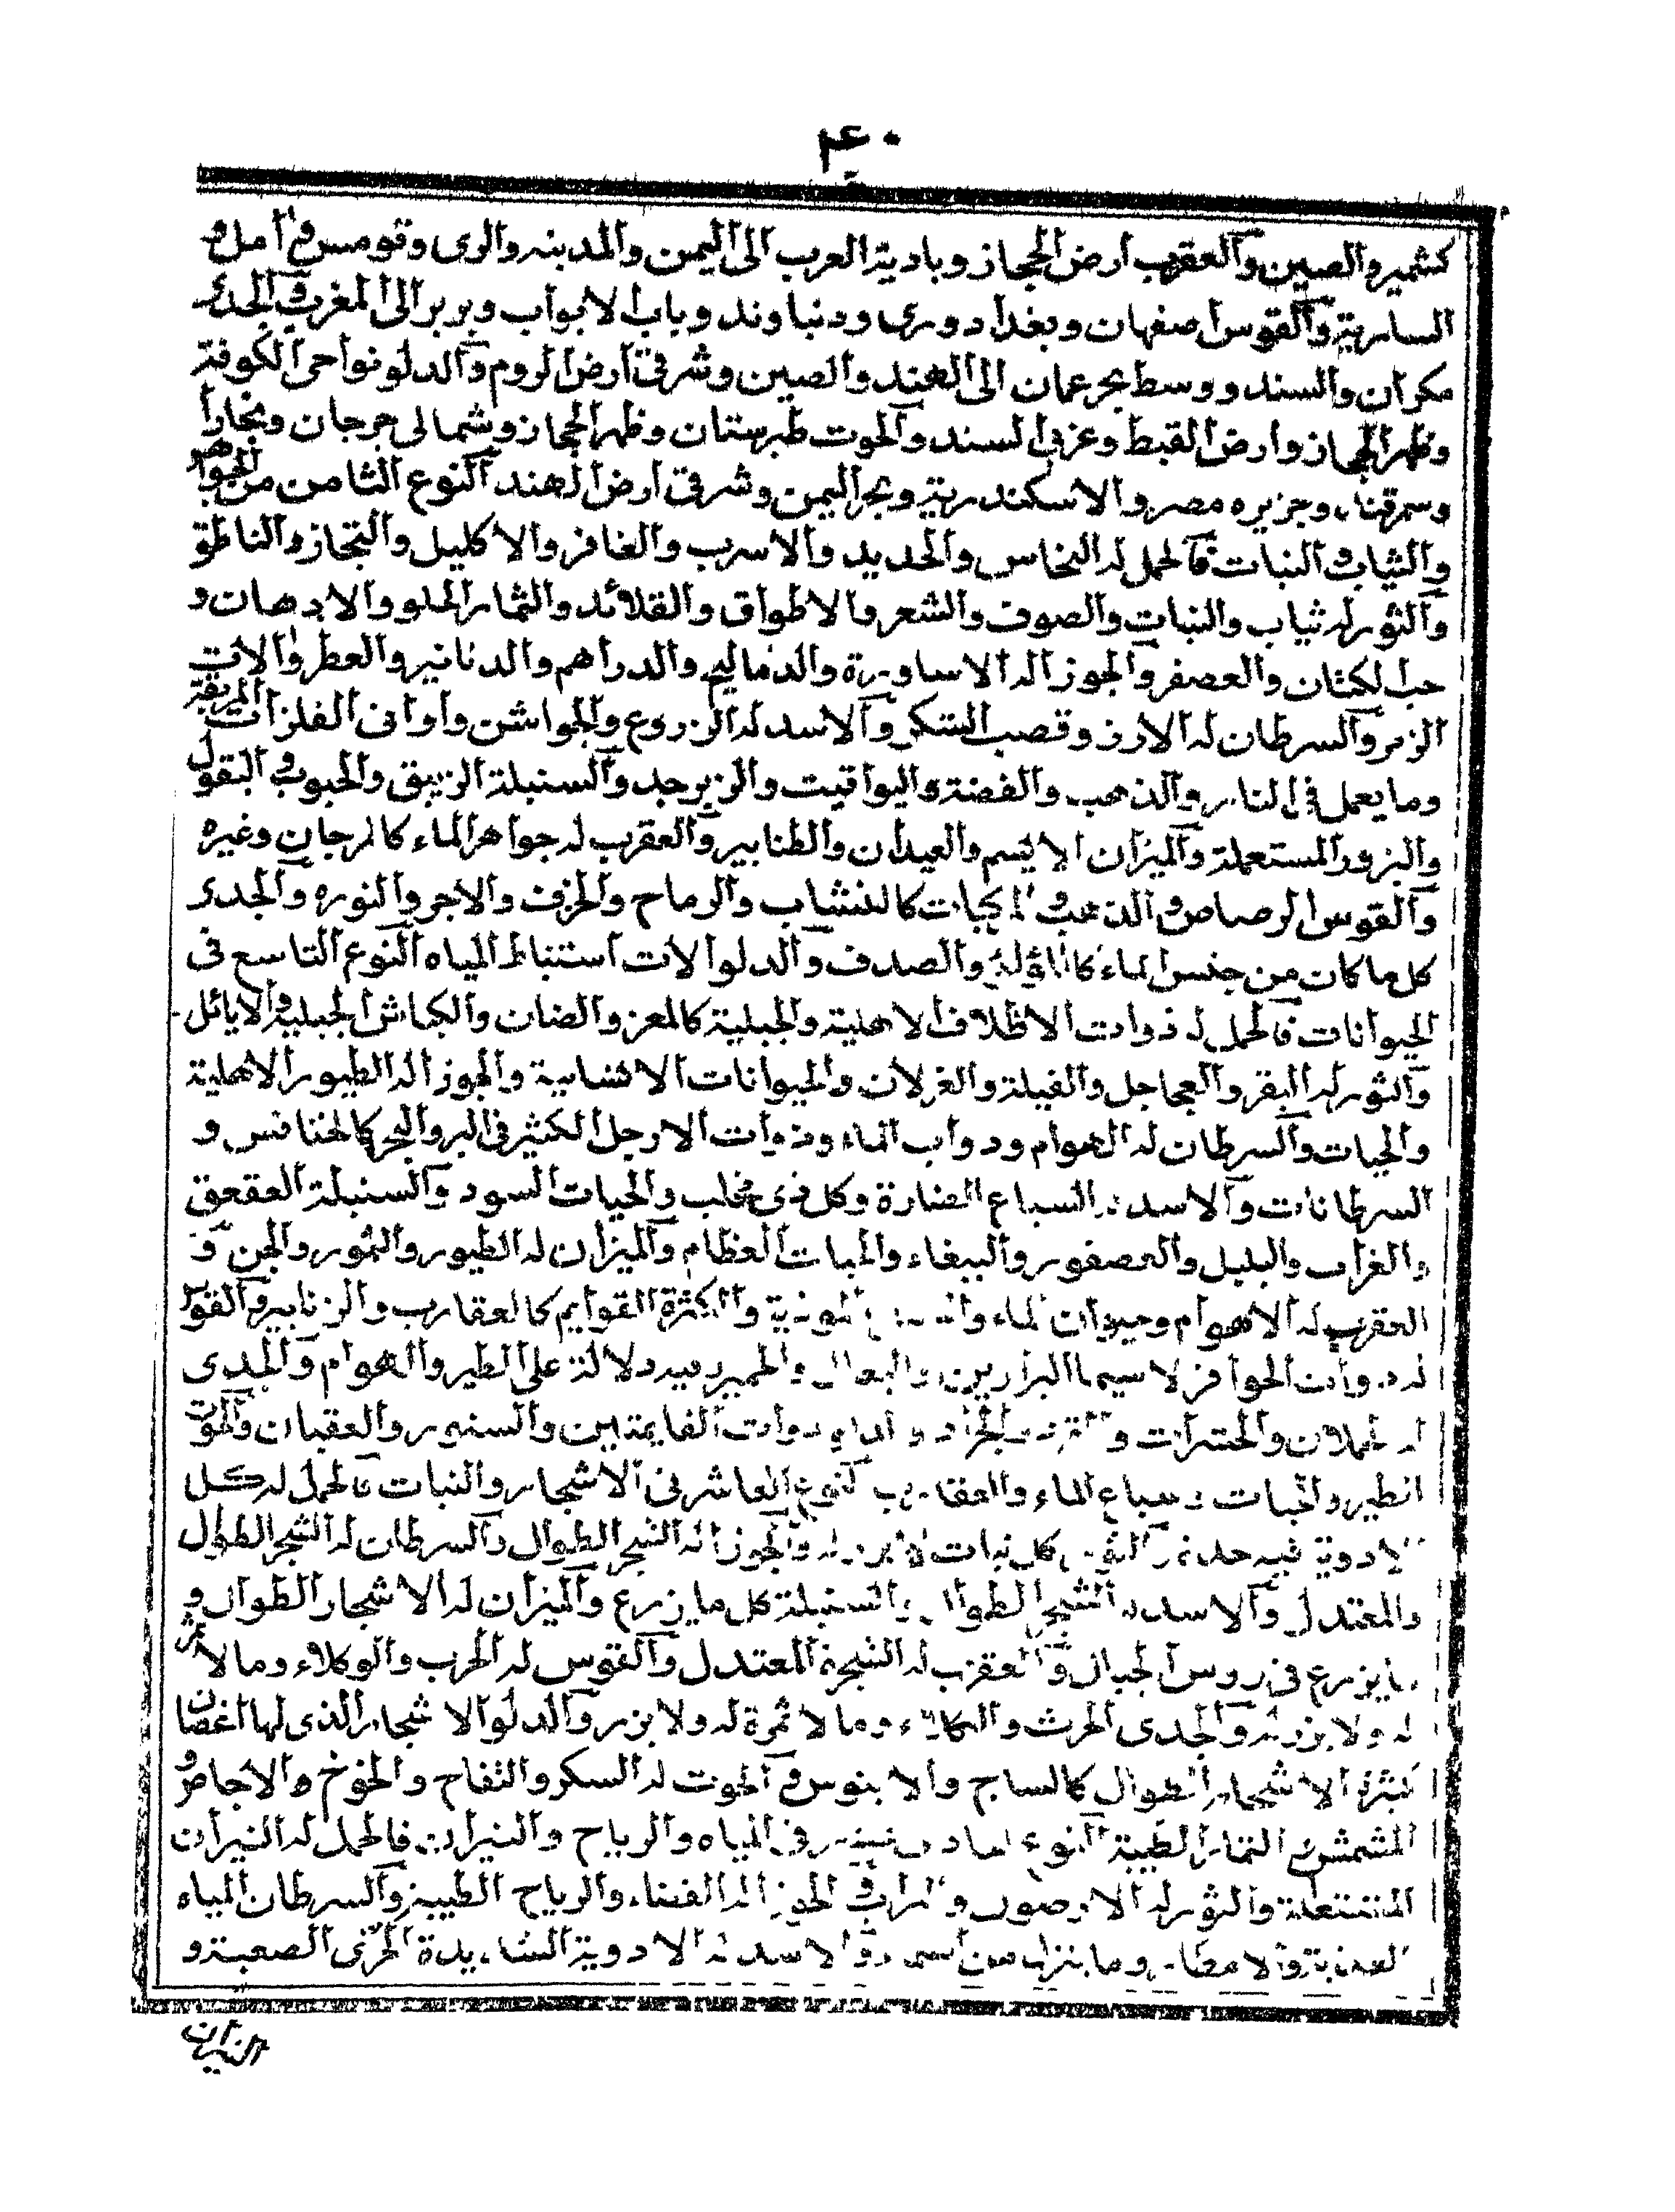 ٤٠
كشمير والصين والعقرب ارض الحجاز وبادية العرب الى اليمن والمدينه والرى وقومس و امل و
السارية والقوس اصفهان وبغداد ورى ودنباوند وباب الابواب وبربر الى المغرب والجدى
مكران والسند ووسط بحر عمان الى الهند والصين وشرقى ارض الروم والدلو نواحى الكوفة
وظهر الحجاز وارض القبط وغربى السند والحوت طبرستان وظهر الحجاز وشمالى جرجان وبخارا
وسمرقند وجزيره مصر والاسكندرية وبحر اليمن وشرقى ارض الهند النوع الثامن من الجواهر
والثياب والنبات فالحمل له النحاس والحديد والاسرب والغافر والاكليل والتجازه والناطق
والثور له ثياب والنبات والصوف والشعر والاطواق والقلائد والثمار الحلو والادهان و
حب الكتان والعصفر والجوزا له الاساورة والدماليج والدراهم والدنانير والعطر والات
الزمر والسرطان له الارز وقصب السكر والاسد له الزروع والجواشن واوانى الفلزات المريقة
وما يعمل فى النار والذهب والفضة واليواقيت والزبرجد والسنبلة الزيبق والحبوب والبقول
والبزور المستعملة والميزان الابيسم والعيدان والطنابير والعقرب له جواهر الماء كالمرجان وغيره
والقوس الرصاص والذهب و كالنشاب والرماح والخزف والاجر والنوره والجدى
كل ما كان من جنس الماء كاللؤلؤ والصدف والدلو الات استنباط المياه النوع التاسع فى
الحيوانات فالحمل له ذوات الاظلاف الاهلية والجبلية كالمعز والضان والكباش الجبلية والايائل
والثور له البقر والعجاجل والفيلة والغزلان والحيوانات الانسابية والجوزا له الطيور الاهلية
والحيات والسرطان له الهوام ودواب الماء وذوات الارجل الكثير فى البر والبحر كالخنافس و
السرطانات والاسد له السباع الضارة وكل ذى مخلب والحيات السود والسنبلة العقعق
والغراب والبلبل والعصفور والببغاء والحيات العظام والميزان له الطيور والنمور والجن و
العقرب له الاهوام وحيوان الماء الموذية والكثرة القوايم كالعقارب والزنابير والقوس
له ذوات الحوافر لاسيما البرازين والبغال والحمير وفيه دلالة على الطير والهوام والجدى
له الحملان والحشرات و والجراد و ذوات القايمتين والسنور والعقبان والحوت
الطير والحيات وسباع الماء والعقارب النوع العاشر فى الاشجار والنبات فالحمل له كل
الادوية فيه حدة والثور كل نبات لا بزر له والجوزا له الشجر الطوال والسرطان له الشجر الطوال
والمعتدل والاسد له الشجر الطوال والسنبلة كل ما يزرع والميزان له الاشجار الطوال و
ما يزرع فى روس الجبال والعقرب له الشجرة المعتدل والقوس له الحرب والوكلاء وما لا ثمر
له ولا بزر له والجدى الحرث والكلاء وما لا ثمرة له ولا بزر والدلو الاشجار الذى لها اغصان
كثيرة الاشجار الطوال كالساج والابنوس والحوت له السكر والتفاح والخوخ والاجاص و
المشمش و الثمار الطيبة النوع الحادى عشر فى المياه والرياح والنيران فالحمل له النيران
المشتعلة والثور له الارضون و الجوزا له الفضاء والرياح الطيبة والسرطان المياه
العذبة والامطار وما ينزل من السماء والاسد له الادوية الشديدة الجرى الصعبة و
النيران